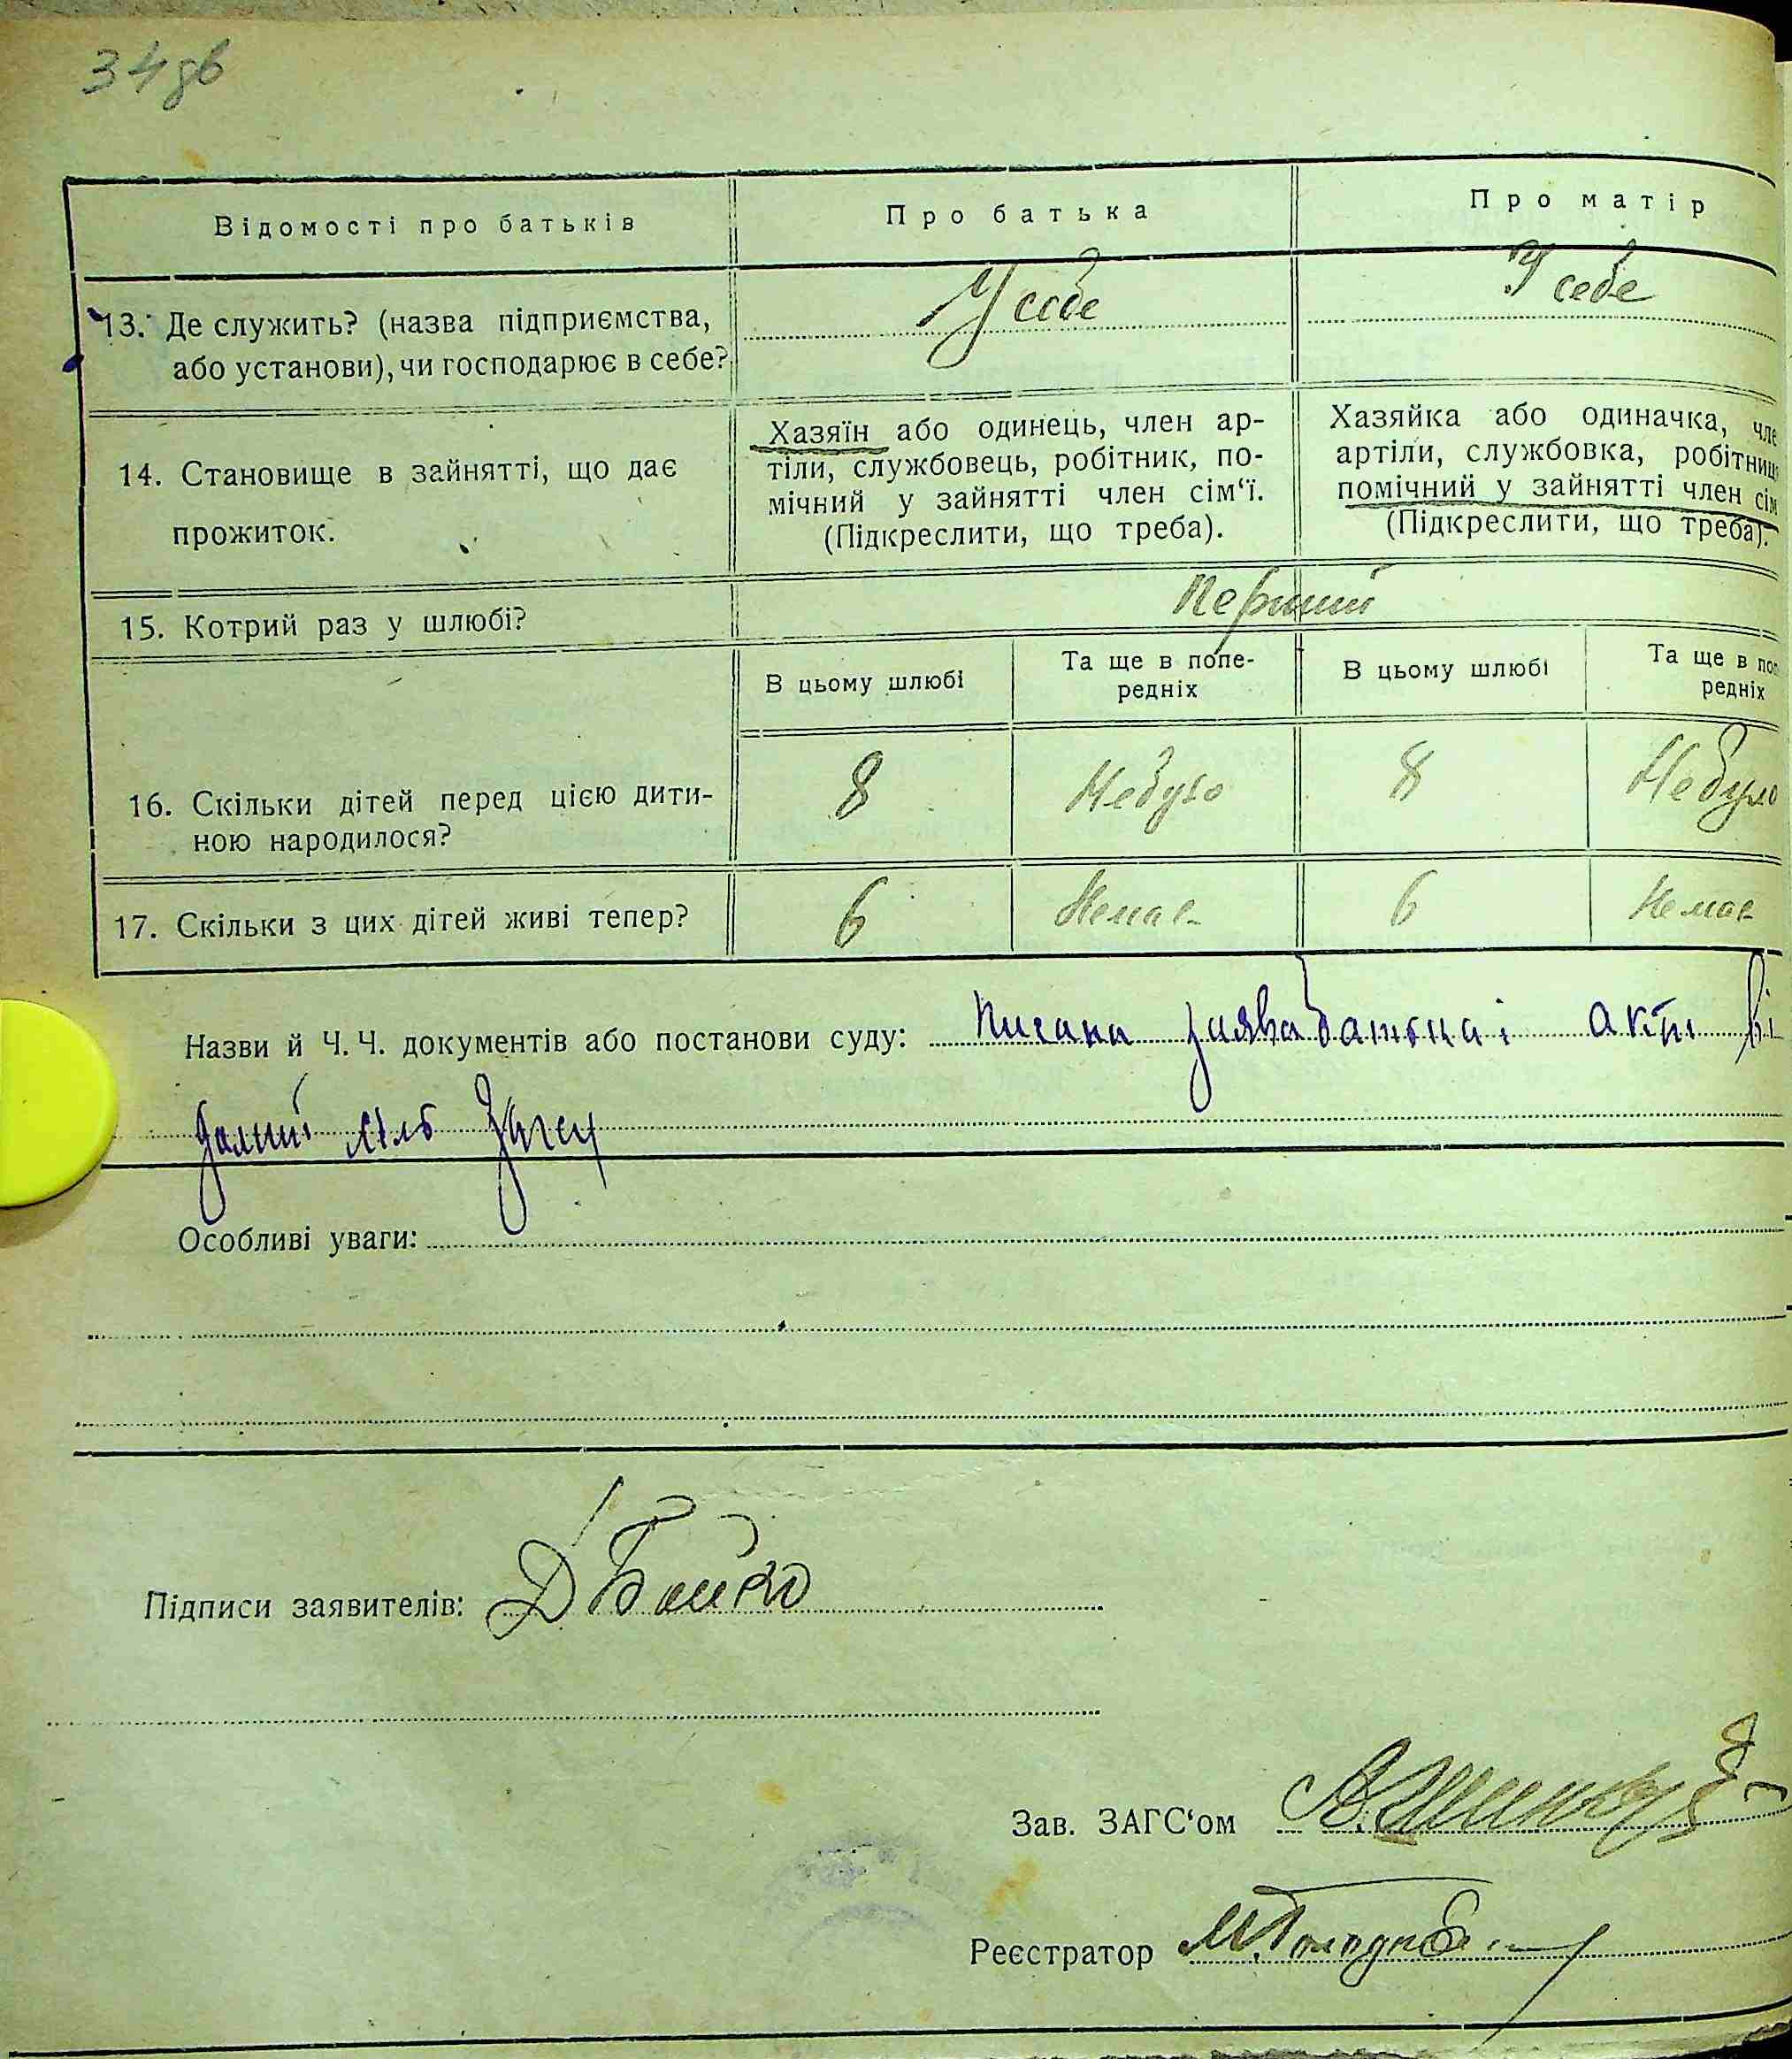 34зв
Відомості про батьків
Про батька
Про матір
13. Де служить? (назва підприємства,
або установи), чи господарює в себе?
У себе
У себе
14. Становище в зайнятті, що дає
прожиток.
Хазяїн або одинець, член ар-
тіли, службовець, робітник, по-
мічний у зайнятті член сім‘ї.
(Підкреслити, що треба).
Хазяйка або одиначка, чле
артіли, службовка, робітниц
помічний у зайнятті член сім
(Підкреслити, що треба).
15. Котрий раз у шлюбі?
Перший
В цьому шлюбі
Та ще в попе-
редніх
В цьому шлюбі
Та ще в поп
редніх
16. Скільки дітей перед цією дити-
ною народилося?
8
Небуло
8
Небуло
17. Скільки з цих дітей живі тепер?
6
Немає
6
Немає
Назви й Ч. Ч. документів або постанови суду: заява батька і акти
Загсу
Особливі уваги:
Підписи заявителів: Д Бойко
Зав. ЗАГС‘ом
Реєстратор